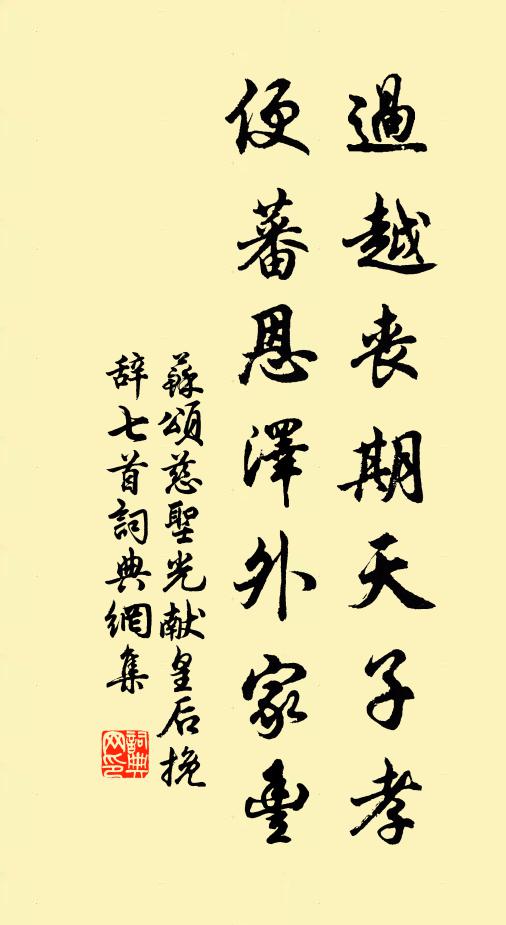 過越喪期天子孝
便蕃恩澤外家豐
蘇頌慈聖光献皇后挽
辞七首詞典網集
詞典网印